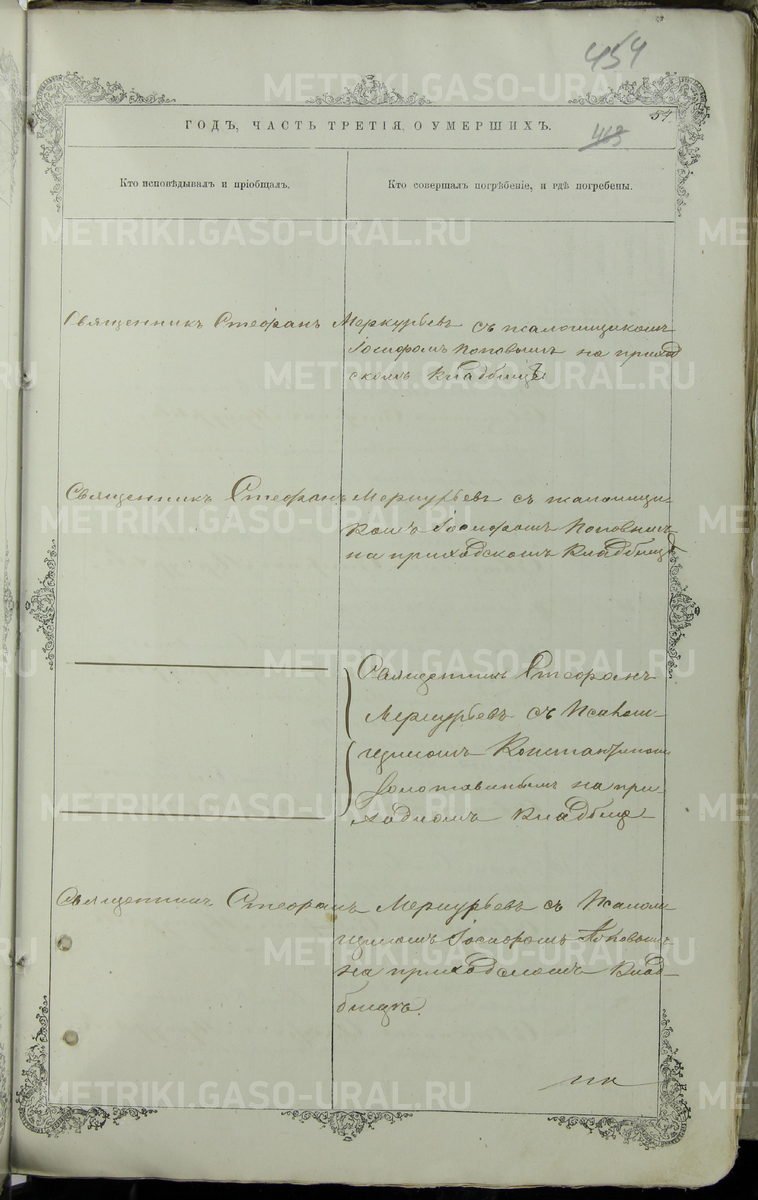 454
54.
ГОДЪ, ЧАСТЬ ТРЕТІЯ, О УМЕРШИХЪ.
463
Кто исповѣдывалъ и пріобщалъ.
Кто совершалъ погрѣбеніе, и гдѣ погребены.
Священникъ Стефанъ Меркурьевъ съ псаломщикомъ
Іосифомъ Поповымъ на приход
скомъ кладбищѣ
Священникъ Стефанъ Меркурьевъ съ псаломщи-
комъ Іосифомъ Поповымъ
на приходскомъ кладбищѣ
Священникъ Стефанъ
Меркурьевъ съ Псалом-
щикомъ Константиномъ
Золотавинымъ на при-
ходскомъ кладбищѣ
Священникъ Стефанъ Меркурьевъ съ Псалом
щикомъ Іосифомъ Поповымъ
на приходскомъ клад-
бищѣ.
METRIKI.GASO-URAL.RU